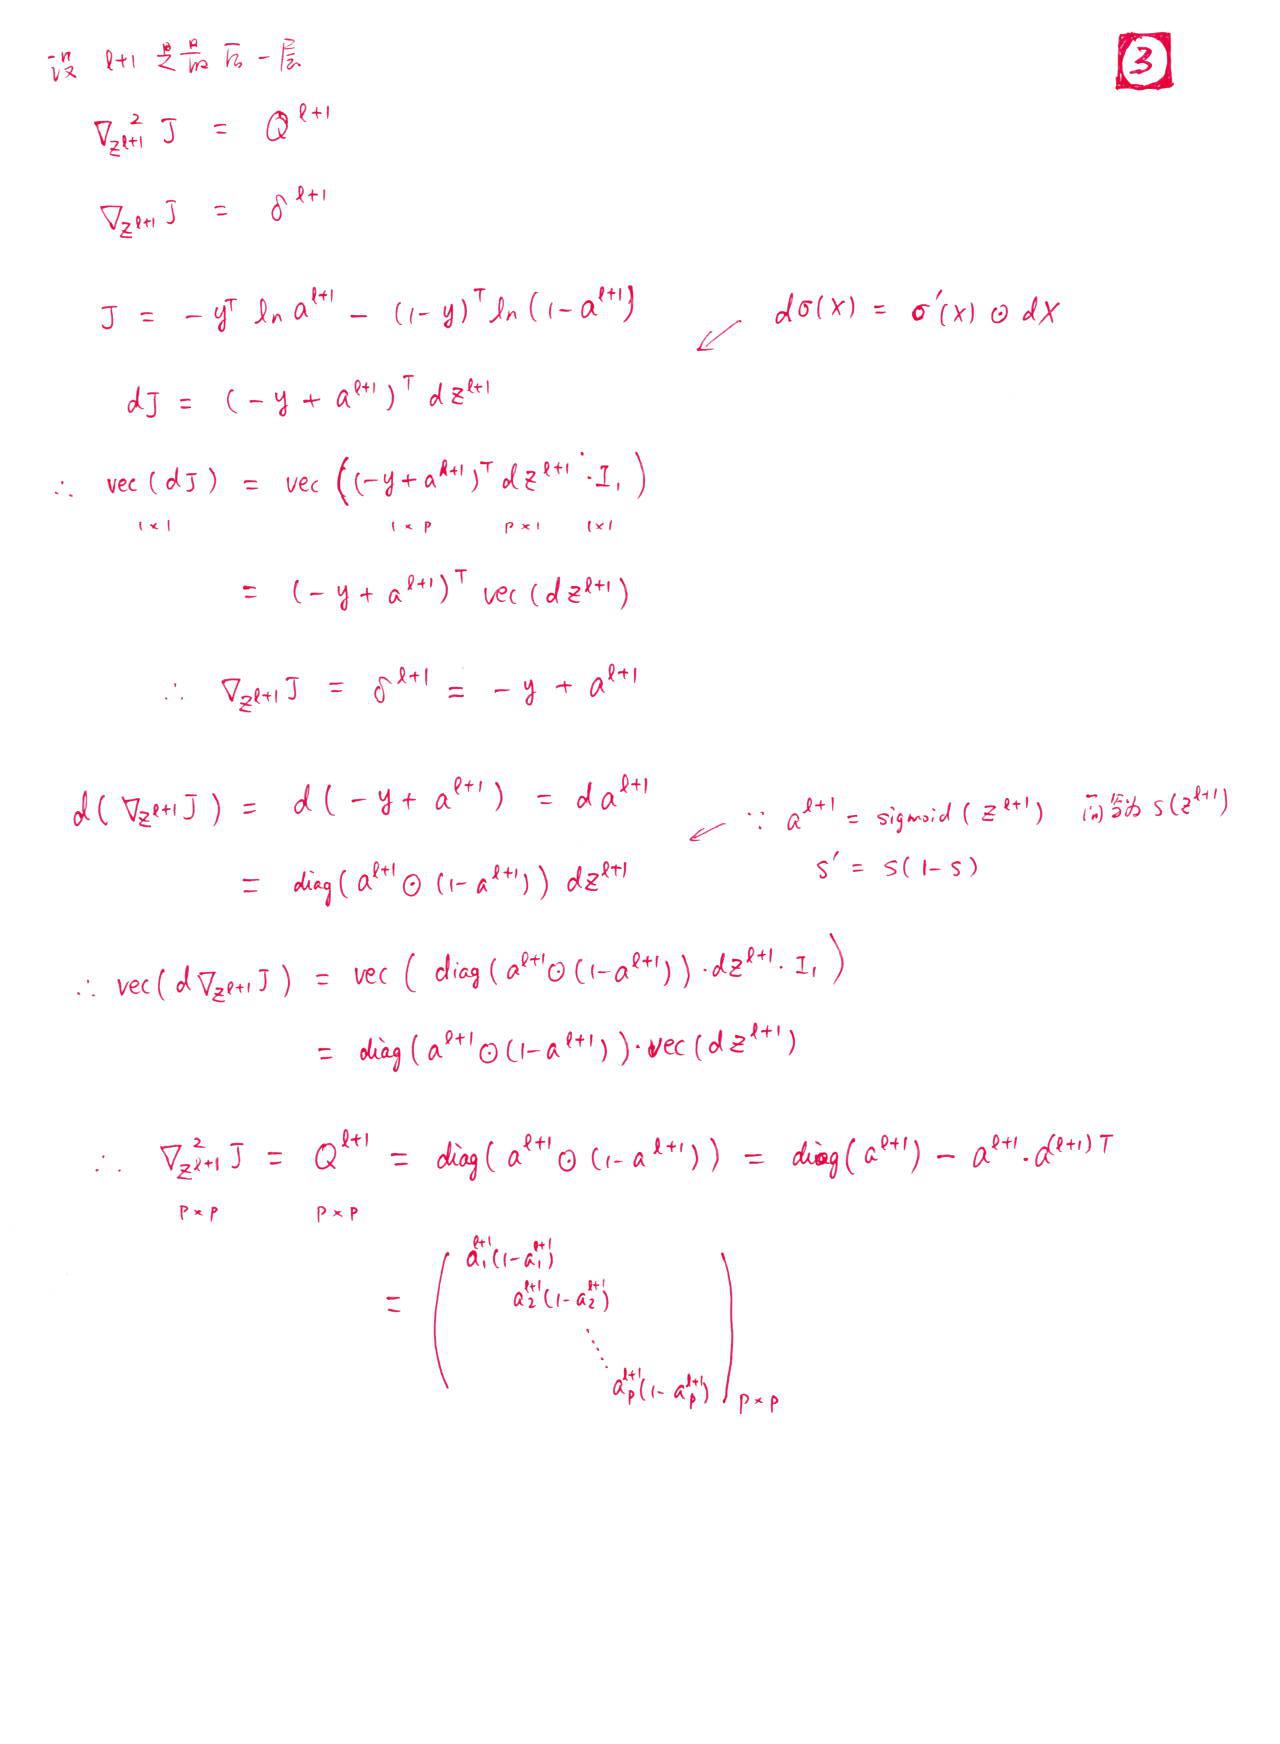 设 l+1 是最后一层
3
∇²_{z^{l+1}} J = Q^{l+1}
∇_{z^{l+1}} J = δ^{l+1}
J = -y^T ln a^{l+1} - (1-y)^T ln(1-a^{l+1}) ↙ dσ(X) = σ'(X) ⊙ dX
dJ = (-y + a^{l+1})^T dz^{l+1}
∴ vec(dJ) = vec((-y+a^{l+1})^T dz^{l+1} · I_1)
1×1 1×p p×1 1×1
= (-y + a^{l+1})^T vec(dz^{l+1})
∴ ∇_{z^{l+1}} J = δ^{l+1} = -y + a^{l+1}
d(∇_{z^{l+1}} J) = d(-y + a^{l+1}) = da^{l+1} ↙ ∵ a^{l+1} = sigmoid(z^{l+1}) 简写为 S(z^{l+1})
S' = S(1-S)
= diag(a^{l+1} ⊙ (1-a^{l+1})) dz^{l+1}
∴ vec(d∇_{z^{l+1}} J) = vec(diag(a^{l+1} ⊙ (1-a^{l+1})) · dz^{l+1} · I_1)
= diag(a^{l+1} ⊙ (1-a^{l+1})) · vec(dz^{l+1})
∴ ∇²_{z^{l+1}} J = Q^{l+1} = diag(a^{l+1} ⊙ (1-a^{l+1})) = diag(a^{l+1}) - a^{l+1} · a^{(l+1)T}
p×p p×p
a_1^{l+1}(1-a_1^{l+1})
= ( a_2^{l+1}(1-a_2^{l+1})
⋱
a_p^{l+1}(1-a_p^{l+1}) )_{p×p}